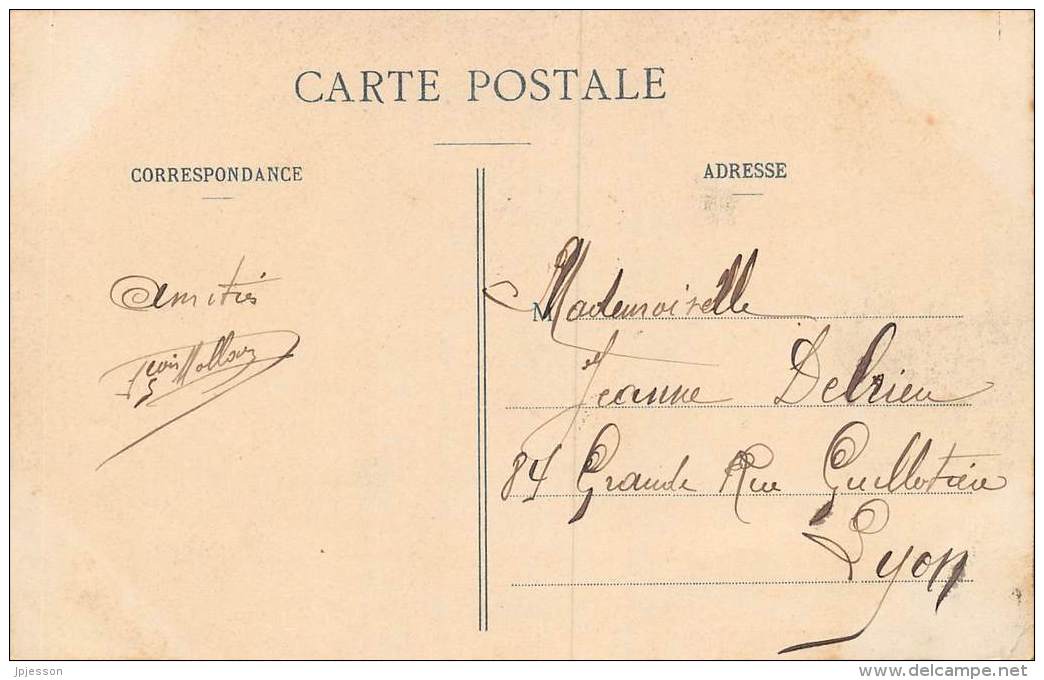 CARTE POSTALE
CORRESPONDANCE
Amitiés
ADRESSE
M Mademoiselle
Jeanne Delrieu
84 Grande Rue Guillotière
Lyon
jpjesson
www.delcampe.net